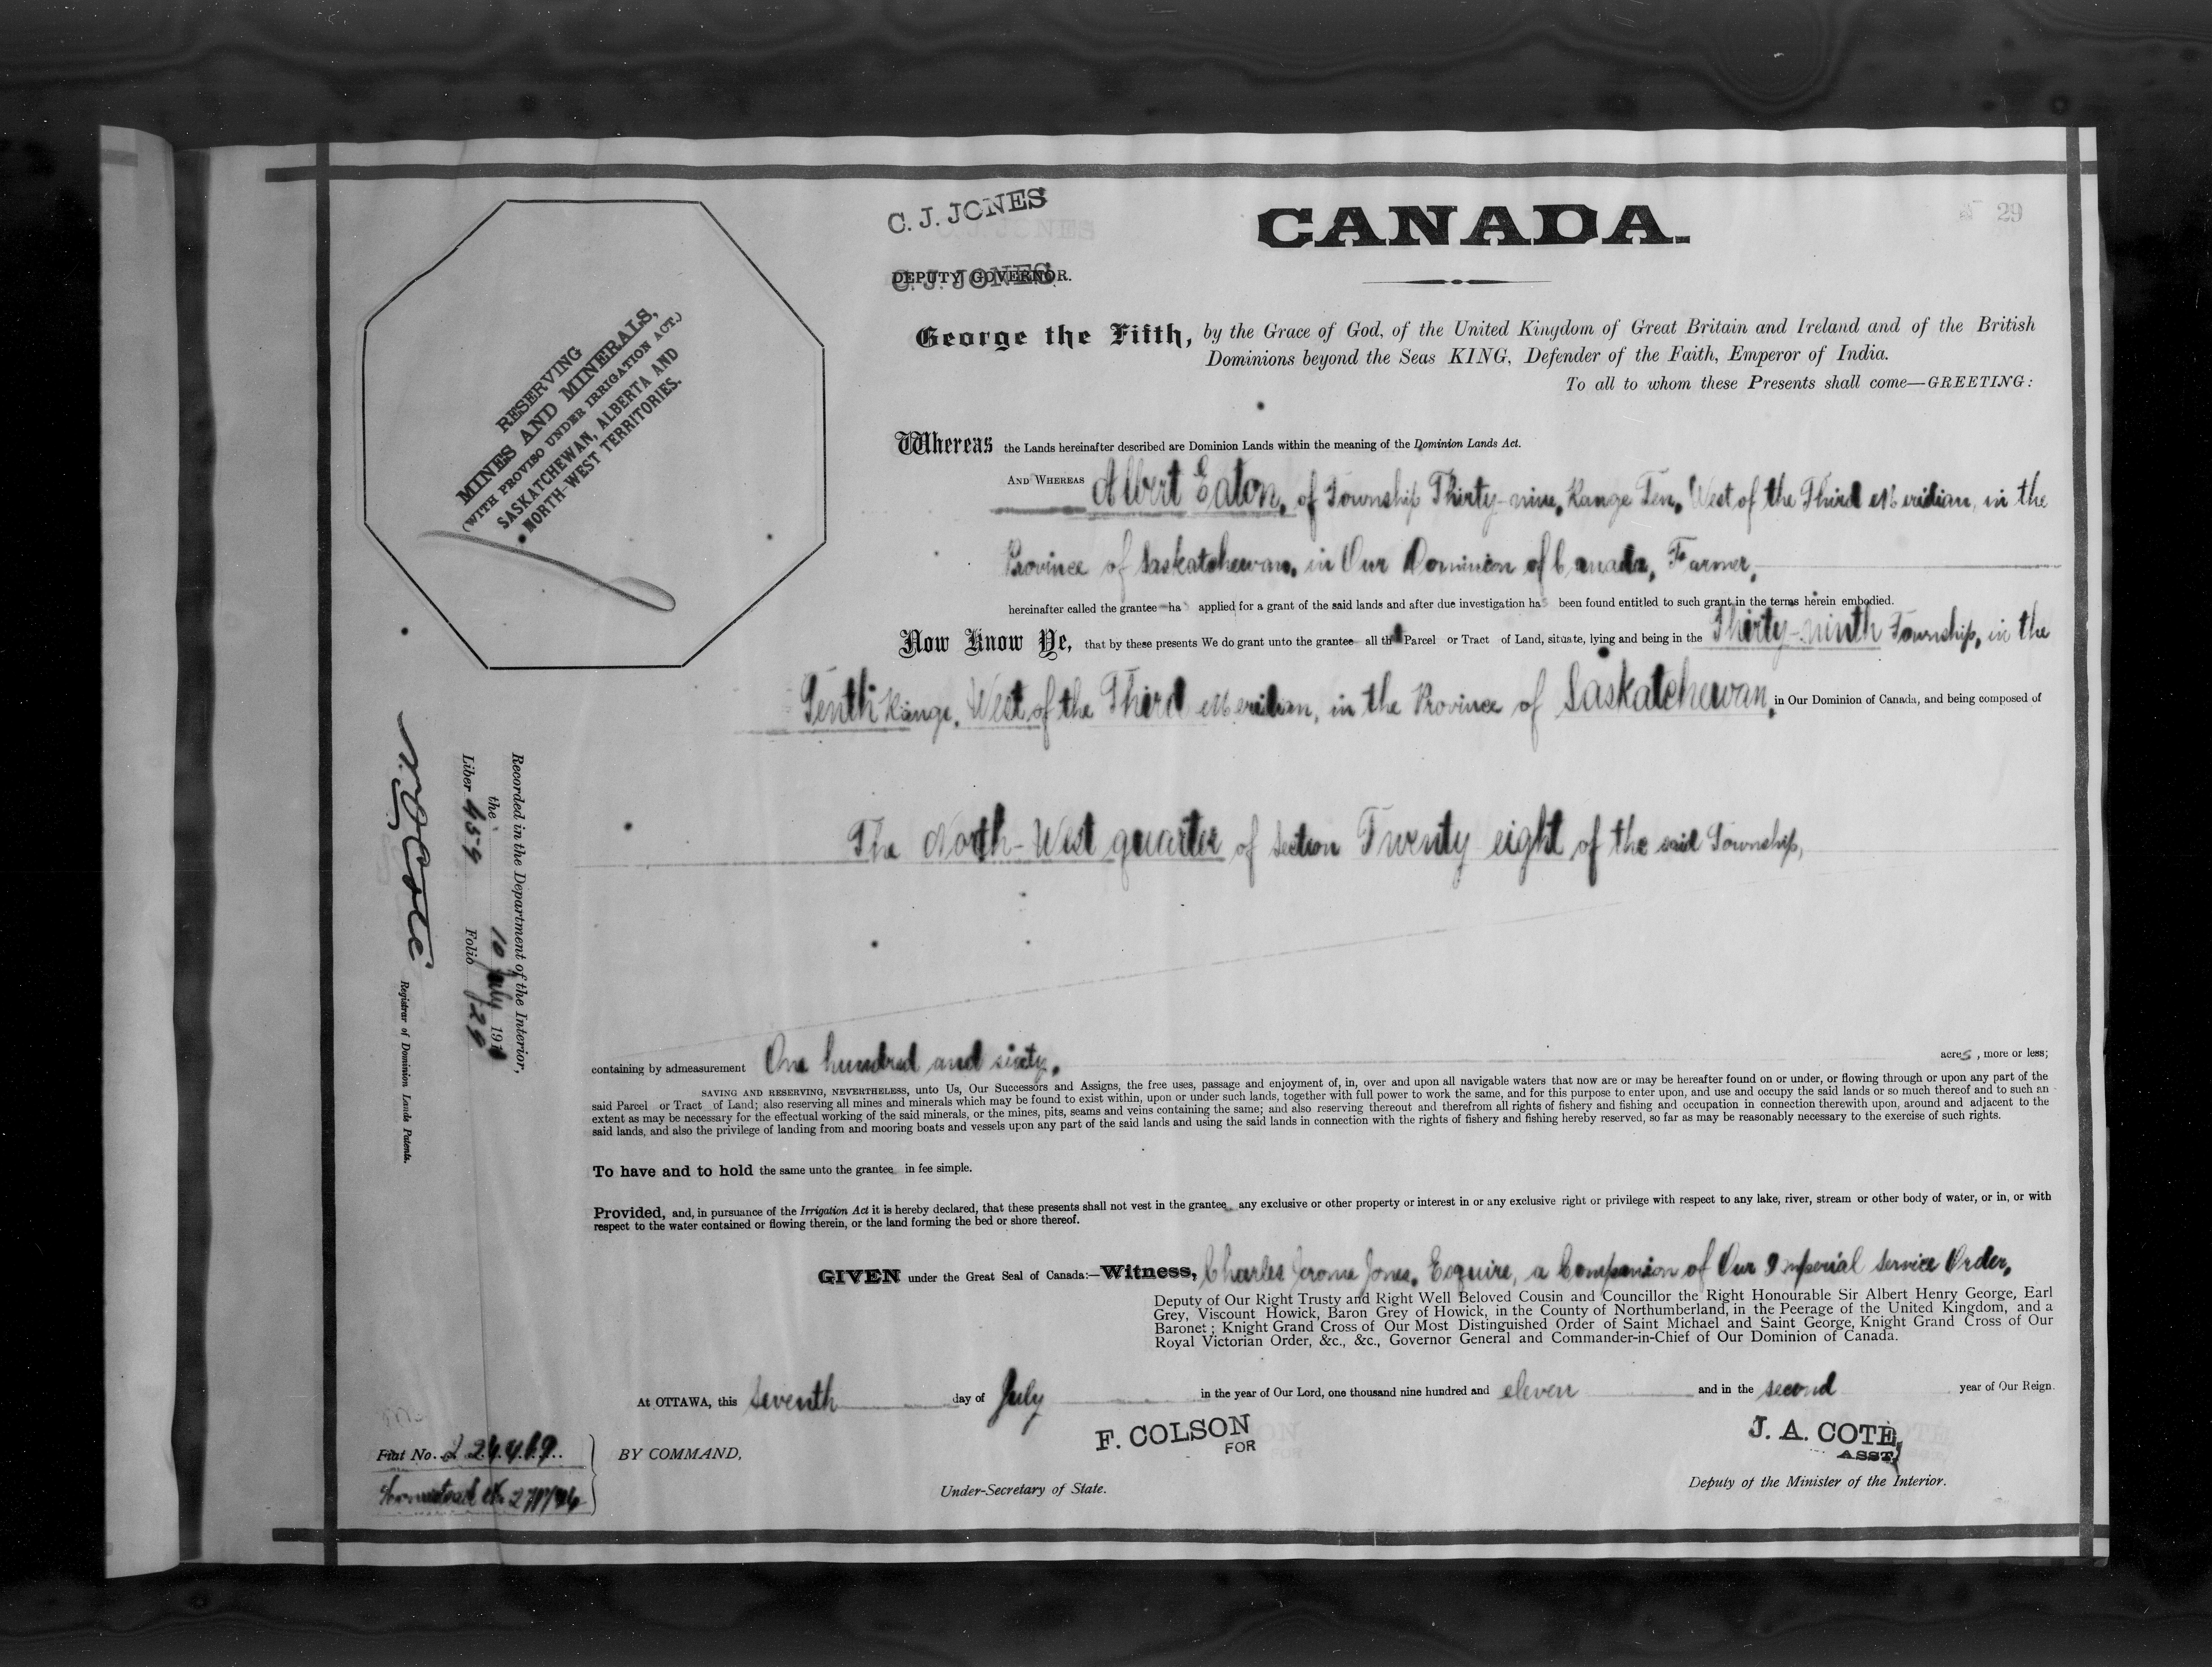 C. J. JONES
CANADA.
29
C. J. JONES
DEPUTY GOVERNOR.
RESERVING
MINES AND MINERALS,
(WITH PROVISO UNDER IRRIGATION ACT.)
SASKATCHEWAN, ALBERTA AND
NORTH-WEST TERRITORIES.
George the Fifth, by the Grace of God, of the United Kingdom of Great Britain and Ireland and of the British
Dominions beyond the Seas KING, Defender of the Faith, Emperor of India.
To all to whom these Presents shall come—GREETING:
Whereas the Lands hereinafter described are Dominion Lands within the meaning of the Dominion Lands Act.
AND WHEREAS Albert Eaton, of Township Thirty-nine, Range Ten, West of the Third Meridian, in the
Province of Saskatchewan, in Our Dominion of Canada, Farmer,
hereinafter called the grantee has applied for a grant of the said lands and after due investigation has been found entitled to such grant in the terms herein embodied.
Now Know Ye, that by these presents We do grant unto the grantee all that Parcel or Tract of Land, situate, lying and being in the Thirty-ninth Township, in the
Tenth Range, West of the Third Meridian, in the Province of Saskatchewan, in Our Dominion of Canada, and being composed of
The North-West quarter of Section Twenty eight of the said Township,
containing by admeasurement One hundred and sixty, acres, more or less;
SAVING AND RESERVING, NEVERTHELESS, unto Us, Our Successors and Assigns, the free uses, passage and enjoyment of, in, over and upon all navigable waters that now are or may be hereafter found on or under, or flowing through or upon any part of the
said Parcel or Tract of Land; also reserving all mines and minerals which may be found to exist within, upon or under such lands, together with full power to work the same, and for this purpose to enter upon, and use and occupy the said lands or so much thereof and to such an
extent as may be necessary for the effectual working of the said minerals, or the mines, pits, seams and veins containing the same; and also reserving thereout and therefrom all rights of fishery and fishing and occupation in connection therewith upon, around and adjacent to the
said lands, and also the privilege of landing from and mooring boats and vessels upon any part of the said lands and using the said lands in connection with the rights of fishery and fishing hereby reserved, so far as may be reasonably necessary to the exercise of such rights.
To have and to hold the same unto the grantee in fee simple.
Provided, and, in pursuance of the Irrigation Act it is hereby declared, that these presents shall not vest in the grantee any exclusive or other property or interest in or any exclusive right or privilege with respect to any lake, river, stream or other body of water, or in, or with
respect to the water contained or flowing therein, or the land forming the bed or shore thereof.
GIVEN under the Great Seal of Canada:—Witness, Charles Jerome Jones, Esquire, a Companion of Our Imperial Service Order,
Deputy of Our Right Trusty and Right Well Beloved Cousin and Councillor the Right Honourable Sir Albert Henry George, Earl
Grey, Viscount Howick, Baron Grey of Howick, in the County of Northumberland, in the Peerage of the United Kingdom, and a
Baronet; Knight Grand Cross of Our Most Distinguished Order of Saint Michael and Saint George, Knight Grand Cross of Our
Royal Victorian Order, &c., &c., Governor General and Commander-in-Chief of Our Dominion of Canada.
At OTTAWA, this seventh day of July in the year of Our Lord, one thousand nine hundred and eleven and in the second year of Our Reign
BY COMMAND,
F. COLSON
FOR
Under-Secretary of State.
J. A. COTE,
ASST.
Deputy of the Minister of the Interior.
Fiat No. 224469
Homestead No.
Recorded in the Department of the Interior,
the 10 July 191
Liber 459 Folio 29
N. O. Coté
Registrar of Dominion Lands Patents.